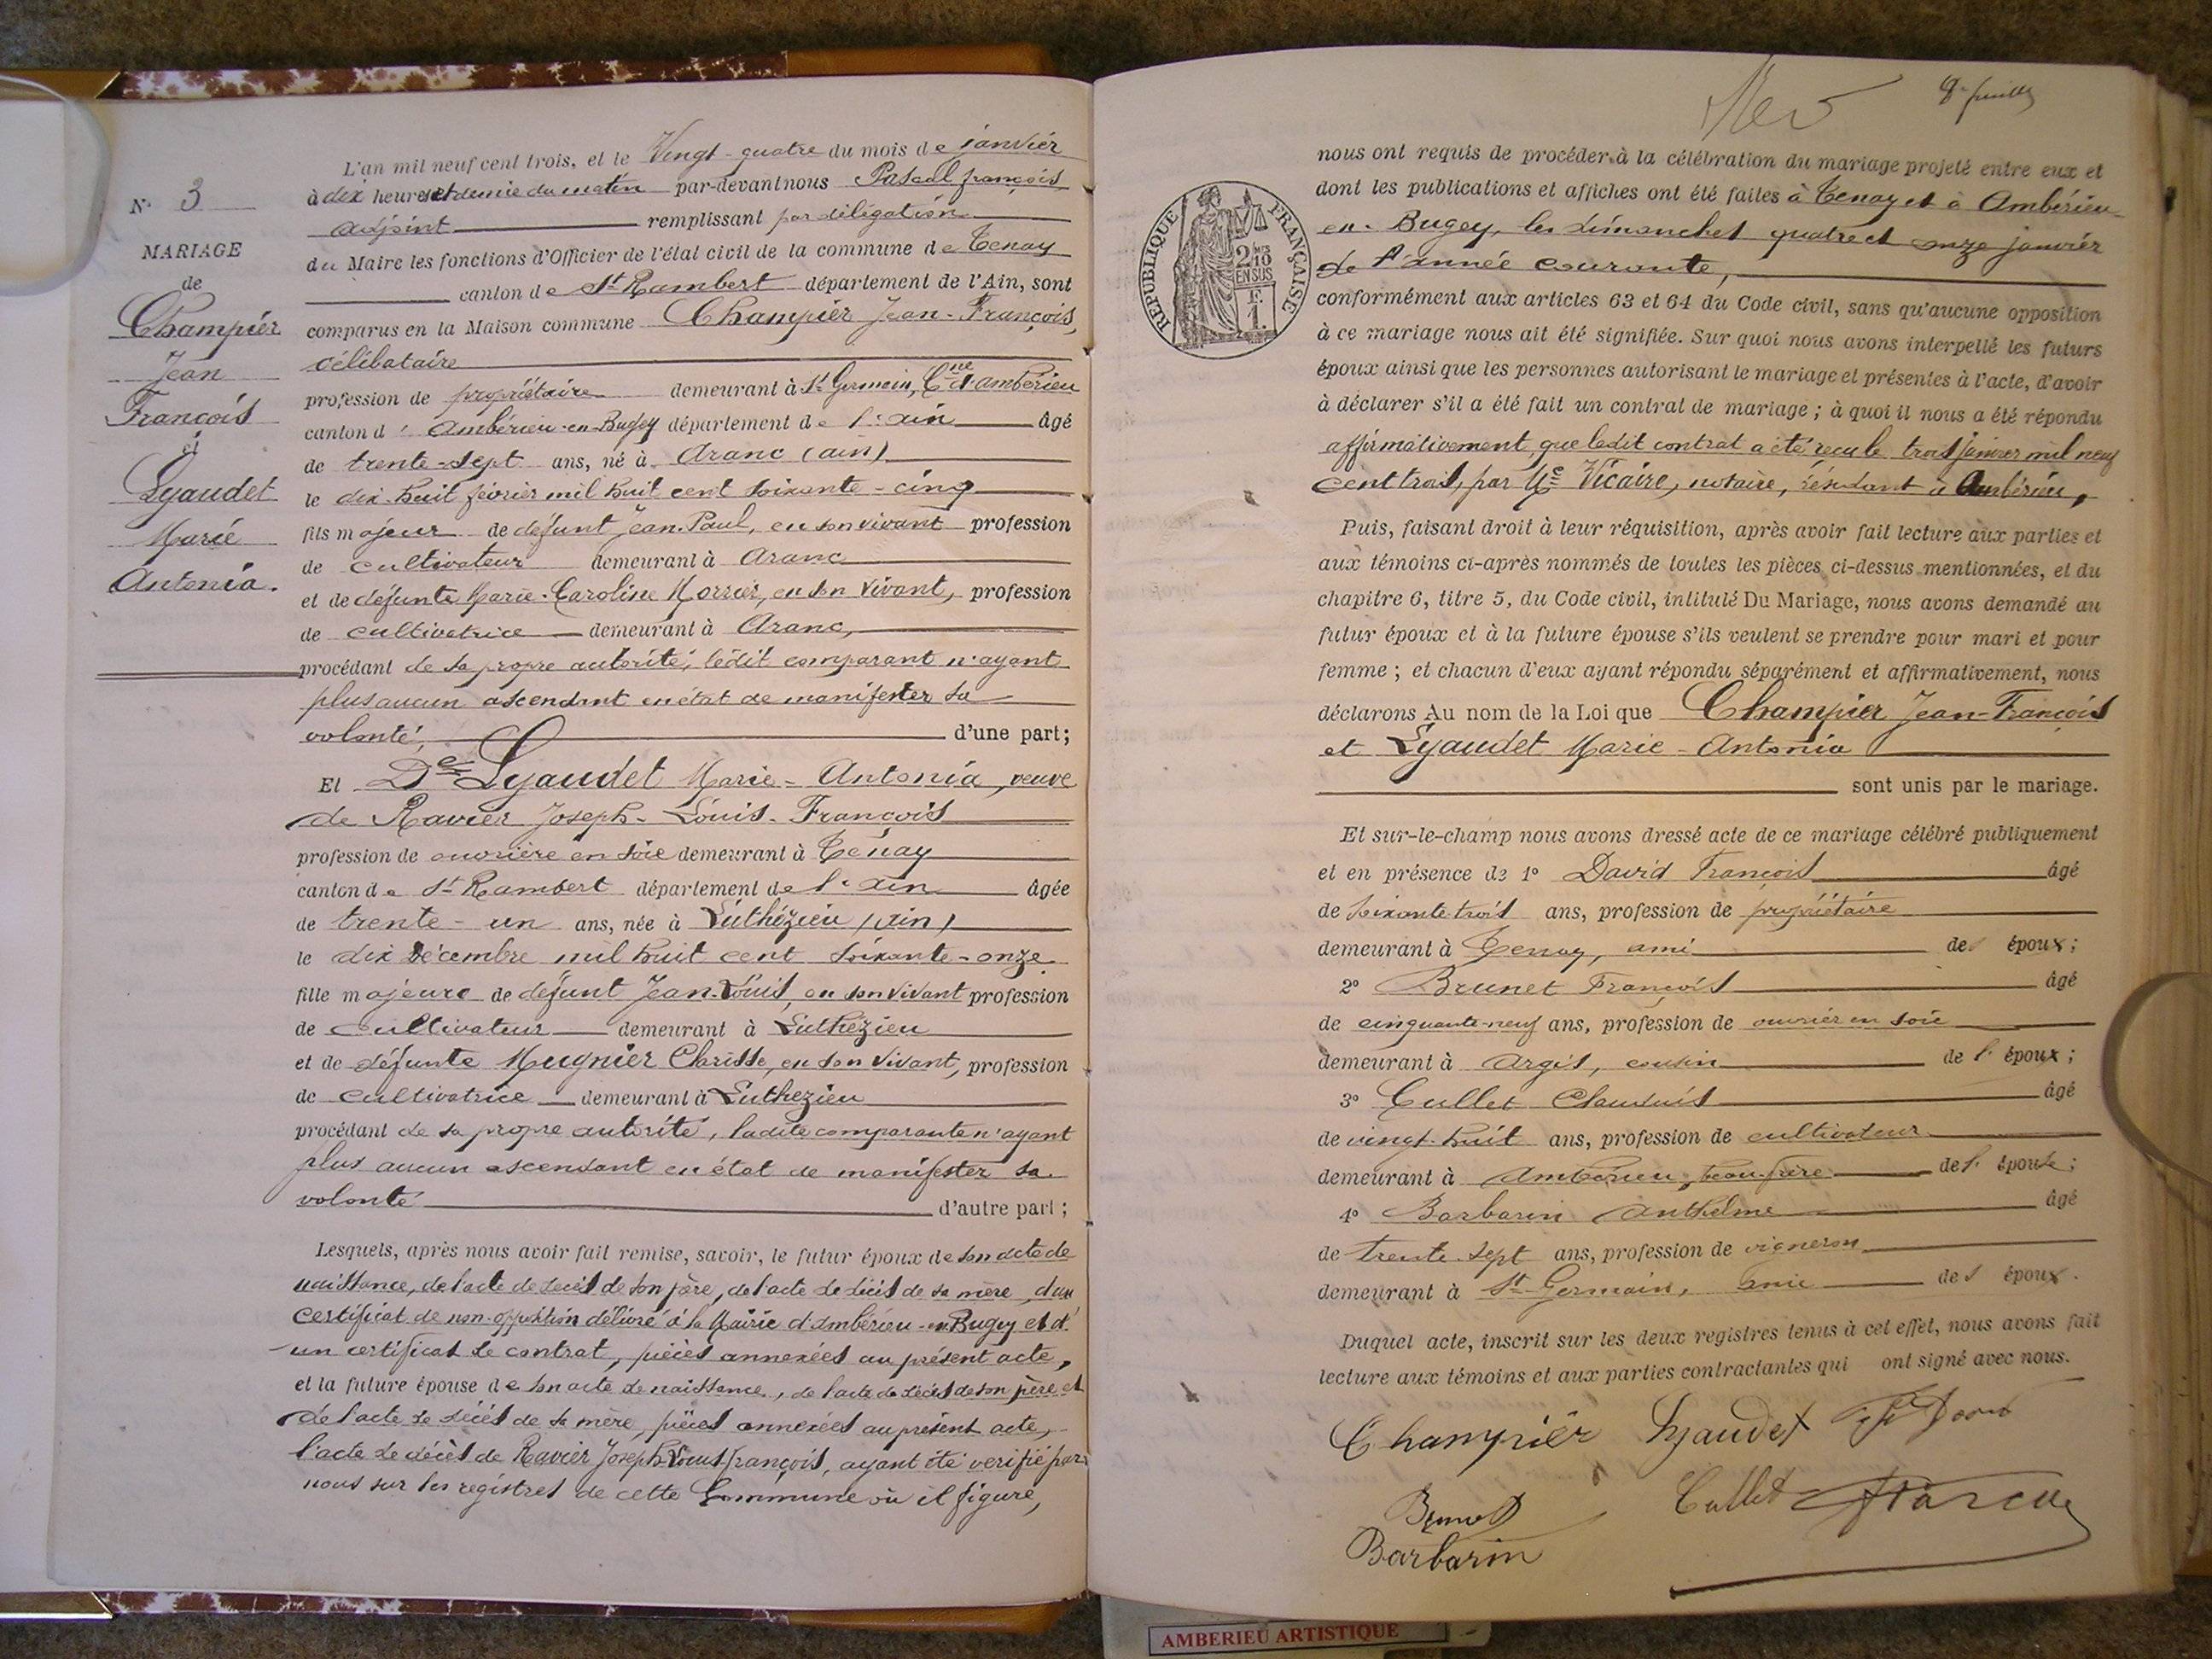 N° 3
MARIAGE
de
Champier
Jean
François
et
Lyaudet
Marie
Antonia.
L'an mil neuf cent trois, et le Vingt-quatre du mois de janvier
à dix heures et demie du matin par-devant nous Pascal françois
adjoint remplissant par délégation
du Maire les fonctions d'Officier de l'état civil de la commune de Tenay
canton de St Rambert département de l'Ain, sont
comparus en la Maison commune Champier Jean-François,
célibataire
profession de propriétaire demeurant à St Germain, Cne d'ambérieu
canton d'Ambérieu-en-Bugey département de l'ain âgé
de trente-sept ans, né à Aranc (ain)
le dix-huit février mil huit cent soixante-cinq
fils majeur de défunt Jean-Paul, en son vivant profession
de cultivateur demeurant à Aranc
et de défunte Marie-Caroline Morrier, en son vivant, profession
de cultivatrice demeurant à Aranc,
procédant de sa propre autorité, ledit comparant n'ayant
plus aucun ascendant en état de manifester sa
volonté, d'une part;
Et De Lyaudet Marie-Antonia, veuve
de Ravier Joseph-Louis-François
profession de ouvrière en soie demeurant à Tenay
canton de St Rambert département de l'ain âgée
de trente-un ans, née à Luthézieu (ain)
le dix décembre mil huit cent soixante-onze
fille majeure de défunt Jean-Louis, en son vivant profession
de cultivateur demeurant à Luthézieu
et de défunte Mugnier Clarisse, en son vivant, profession
de cultivatrice demeurant à Luthezieu
procédant de sa propre autorité, ladite comparante n'ayant
plus aucun ascendant en état de manifester sa
volonté d'autre part;
Lesquels, après nous avoir fait remise, savoir, le futur époux de son acte de
naissance, de l'acte de décès de son père, de l'acte de décès de sa mère, d'un
certificat de non-opposition délivré à la Mairie d'Ambérieu-en-Bugey et d'
un certificat de contrat, pièces annexées au présent acte,
et la future épouse de son acte de naissance, de l'acte de décès de son père et
de l'acte de décès de sa mère, pièces annexées au présent acte,
l'acte de décès de Ravier Joseph-Louis-françois, ayant été verifié par
nous sur les registres de cette Commune où il figure,
8e feuille
RÉPUBLIQUE FRANÇAISE
2 10 MES
EN SUS
F.
1.
nous ont requis de procéder à la célébration du mariage projeté entre eux et
dont les publications et affiches ont été faites à Tenay et à Ambérieu-
en-Bugey, les dimanches quatre et onze janvier
de l'année courante,
conformément aux articles 63 et 64 du Code civil, sans qu'aucune opposition
à ce mariage nous ait été signifiée. Sur quoi nous avons interpellé les futurs
époux ainsi que les personnes autorisant le mariage et présentes à l'acte, d'avoir
à déclarer s'il a été fait un contrat de mariage; à quoi il nous a été répondu
affirmativement, que ledit contrat a été reçu le trois janvier mil neuf
cent trois, par Me Vicaire, notaire, résidant à Ambérieu,
Puis, faisant droit à leur réquisition, après avoir fait lecture aux parties et
aux témoins ci-après nommés de toutes les pièces ci-dessus mentionnées, et du
chapitre 6, titre 5, du Code civil, intitulé Du Mariage, nous avons demandé au
futur époux et à la future épouse s'ils veulent se prendre pour mari et pour
femme; et chacun d'eux ayant répondu séparément et affirmativement, nous
déclarons Au nom de la Loi que Champier Jean-François
et Lyaudet Marie-Antonia
sont unis par le mariage.
Et sur-le-champ nous avons dressé acte de ce mariage célébré publiquement
et en présence de 1° David François âgé
de soixante-trois ans, profession de propriétaire
demeurant à Tenay, ami des époux;
2° Brunet François âgé
de cinquante-neuf ans, profession de ouvrier en soie
demeurant à Argis, cousin de l'époux;
3° Cullet Claudius âgé
de vingt-huit ans, profession de cultivateur
demeurant à Ambérieu, beau-frère de l'épouse;
4° Barbarin Anthelme âgé
de trente-sept ans, profession de vigneron
demeurant à St-Germain, ami des époux.
Duquel acte, inscrit sur les deux registres tenus à cet effet, nous avons fait
lecture aux témoins et aux parties contractantes qui ont signé avec nous.
Champier Lyaudet
Brunet Cullet
Barbarin
AMBERIEU ARTISTIQUE